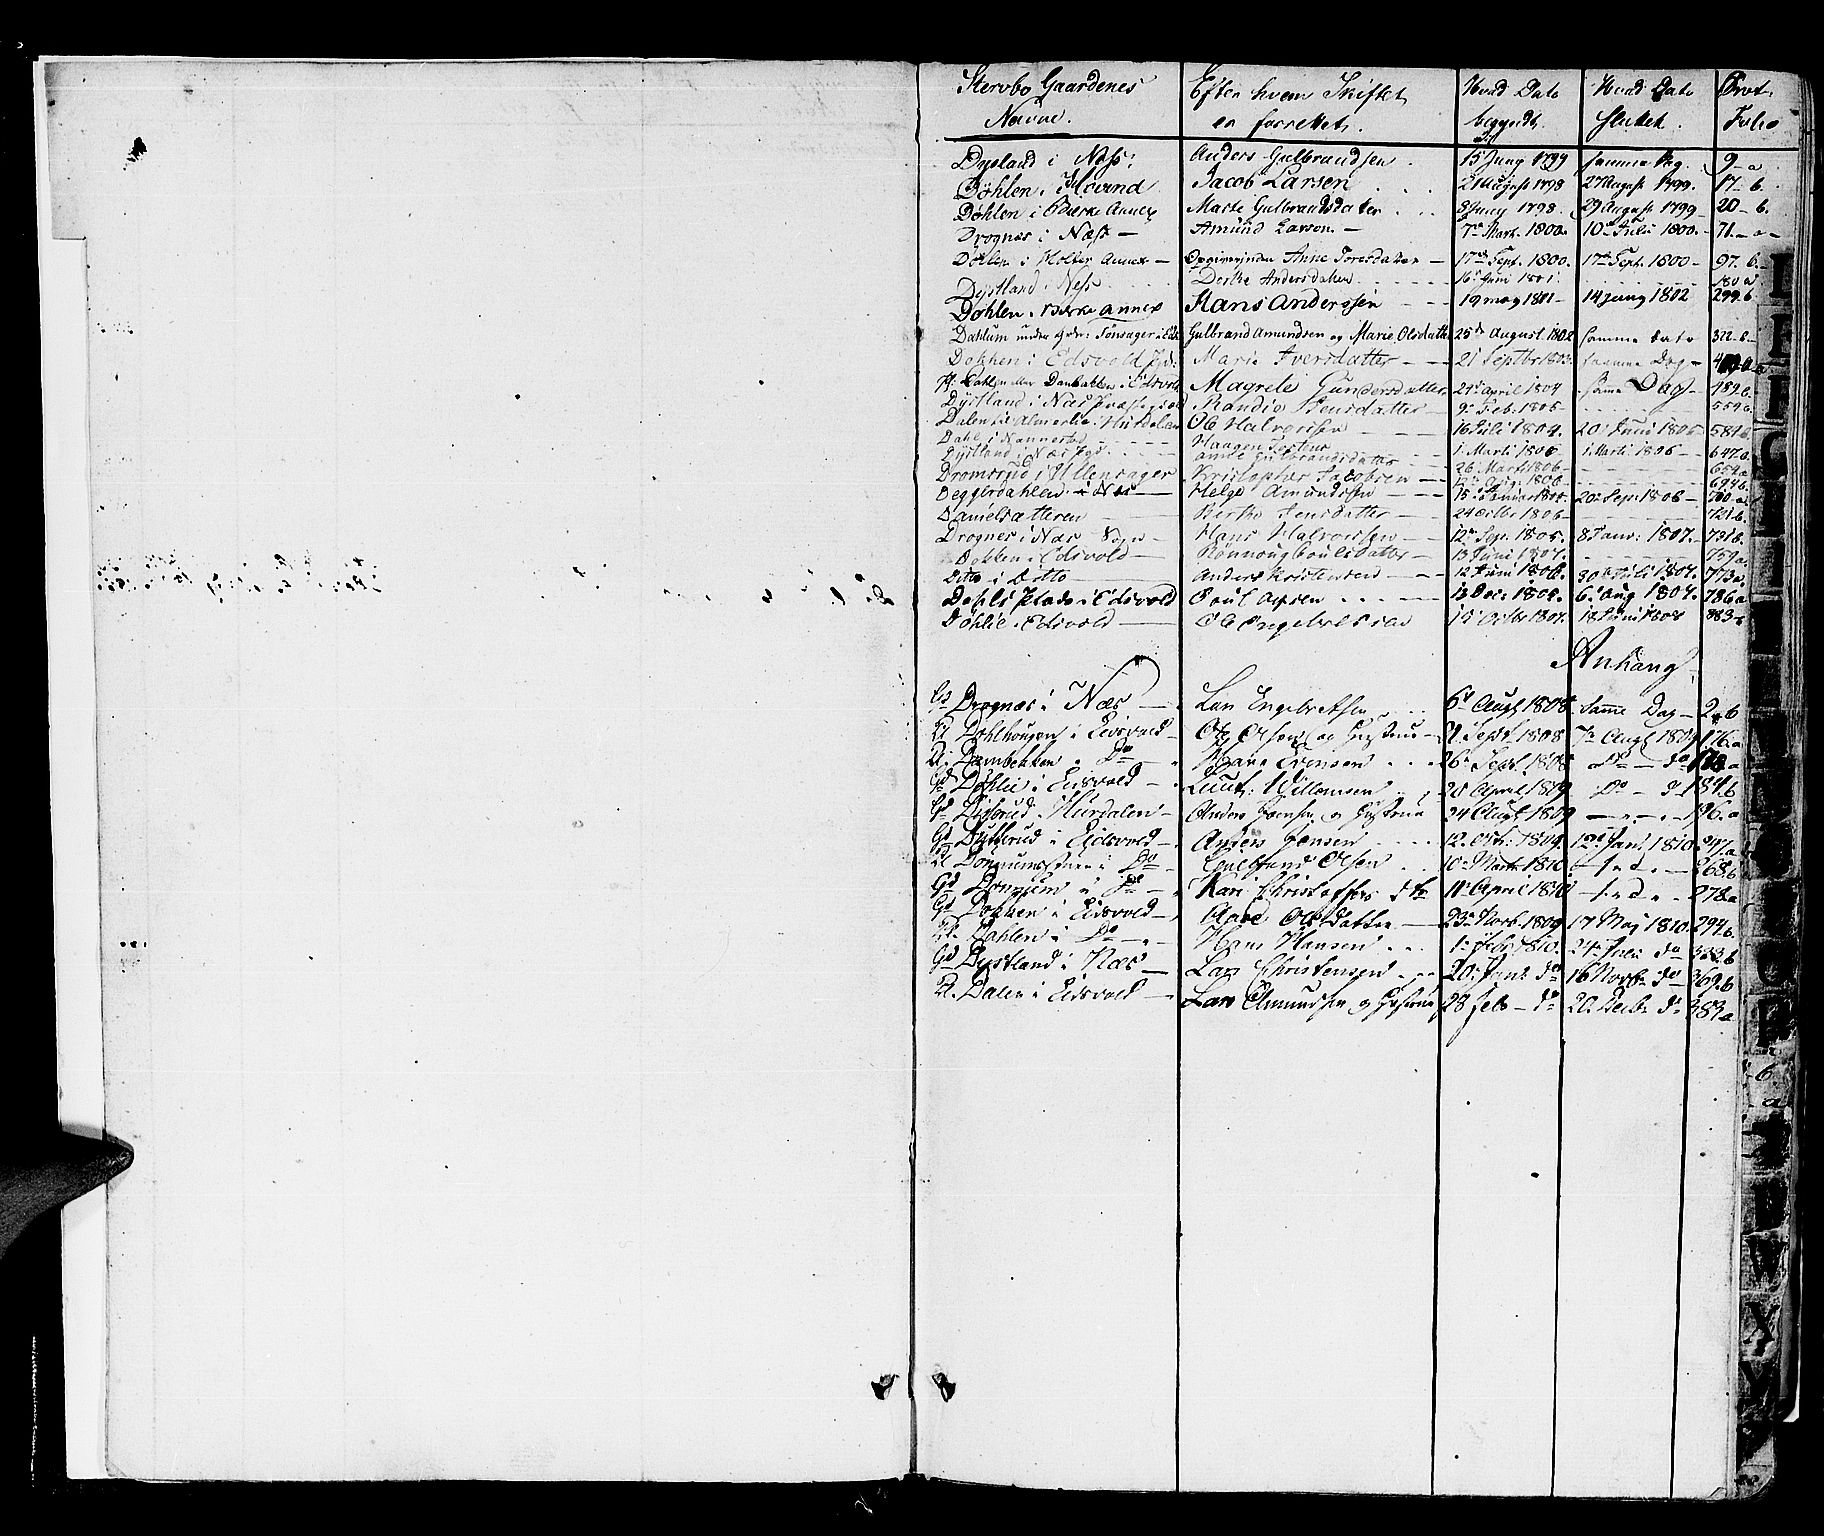 Stervbo Gaardenes Navne. Efter hvem Skiftet er forrettet. Hvad Dato begyndt. Hvad Dato sluttet. Prot. Folio
Dysland i Næss: Anders Gulbrandsen 15 Juny 1799 samme Dag. 9-a
Døhlen i Hovind Jacob Larsen 21 August 1798 27 August 1799. 17-b.
Døhlen i Bierke Annex Marte Gulbrandsdater 8 Juny 1798. 29 August 1799 - 20-b.
Drognæs i Næss - Amund Larsen - 7de Mart. 1800. 10de Juli 1800. - 71-a-
Døhlen i Holter Annex - Anne Toresdater - 17de Sept. 1800. 17de Sept. 1800 - 97.b.-
Dystland i Næss Dorthe Andersdatter 16 Juni 1801. 180 a
Døhlen i Bierke Annex Hans Anderssen 19 may 1801 - 14 juny 1802 299.b
Dahlum under Tønsager i Eids. Gulbrand Amundsen og Marie Olsdatter 25de August 1802 samme dato 322-b-
Dokken i Edsvold Marie Iversdatter - 21 Septbr 1803 samme Dag -
Danbakken i Edsvold Magrete Gundersdatter 24 april 1804 same Dag - 489-b
Dystland i Næs Præstegield Randie Jensdatter - 9. Feb. 1805 - 554 b
Dalen Almerlie Hurdalen Ole Halvorssen 16 Juli 1804. 20 Juni 1805 584 b
Dahl i Nannestad Haagen 1 Marti 1806 1 Marti 1806 - 647 a
Dystland i Næs Anne Gulbrandsdatter 26 Marti 1806 - 654 a
Dromsrud i Ullensager Kristopher Jacobsen 1806 694 b
Deggerdahlen i Næs Helge Amundssen 20 Sep. 1806 - 700 a
Danielsætteren Berthe Jensdatter - 24 Octbr 1806 - 721 b.
Drognes i Næs Hans Halvorssen - 12 Sep. 1805. 8 Janv. 1807. - 731 b.
Dokken i Edsvold - Rønnoug Poulsdatter - 13 Juni 1807. 759 a
Ditto i Ditto Anders Kristensen - 12 Juni 1806. 30 Juli 1807. 773 a.
Dahls Plads i Edsvold Poul 13 Dec. 1806. 6 Aug 1807. 786 a
Døhlie i Edsvold - Ole Engebretsen 15 Octbr 1807. 18 Juni 1808 883-
Anhang
Gd Drognæs i Næs - Lars Engebretsen 6t Augt 1808 samme Dag - 2-b
Pl Dahlhougen i Eidsvold - Ole Olsen og Hustrue - 9 Septr 1808 7de Augt 1809 176 a
Pl. Danbakken i Do - Marie Evensen 26 Septr 1808 Do - do
Gd Døhlie i Eidsvold - Lieut: Willomsen 20 April 1809 Do - do 184 b
Gd Disterud Hurdalen - Anders Jonsen og Hustrue 24 Augt 1809 - 196. a
Gd Dytterud i Eidsvold - Anders Jensen 12. Oct. 1809. 12 Jan. 1810. 247 a
Pl Donnumseiet i Do - Gulbrand Olsen 10 Marti 1810 - 268 b
Gd Donnum i Do - Kari Christoffersdtr 11 April 1810 - 278 a
Gd Dokken i Eidsvold - Marie Olsdatter - 23 Novb. 1809 17 May 1810. 294 b.
Pl. Dahlen i Do - Hans Hansen 1 Febr 1810. 24 Juli do 323 b
Gd Dystland i Næs - Lars Christensen 20 Jan: do 16 Novbr do 369 b
Pl. Dalen i Eidsvold - Lars Amundsen og Hustrue 28 Feb - do 20 Decbr do 383 a